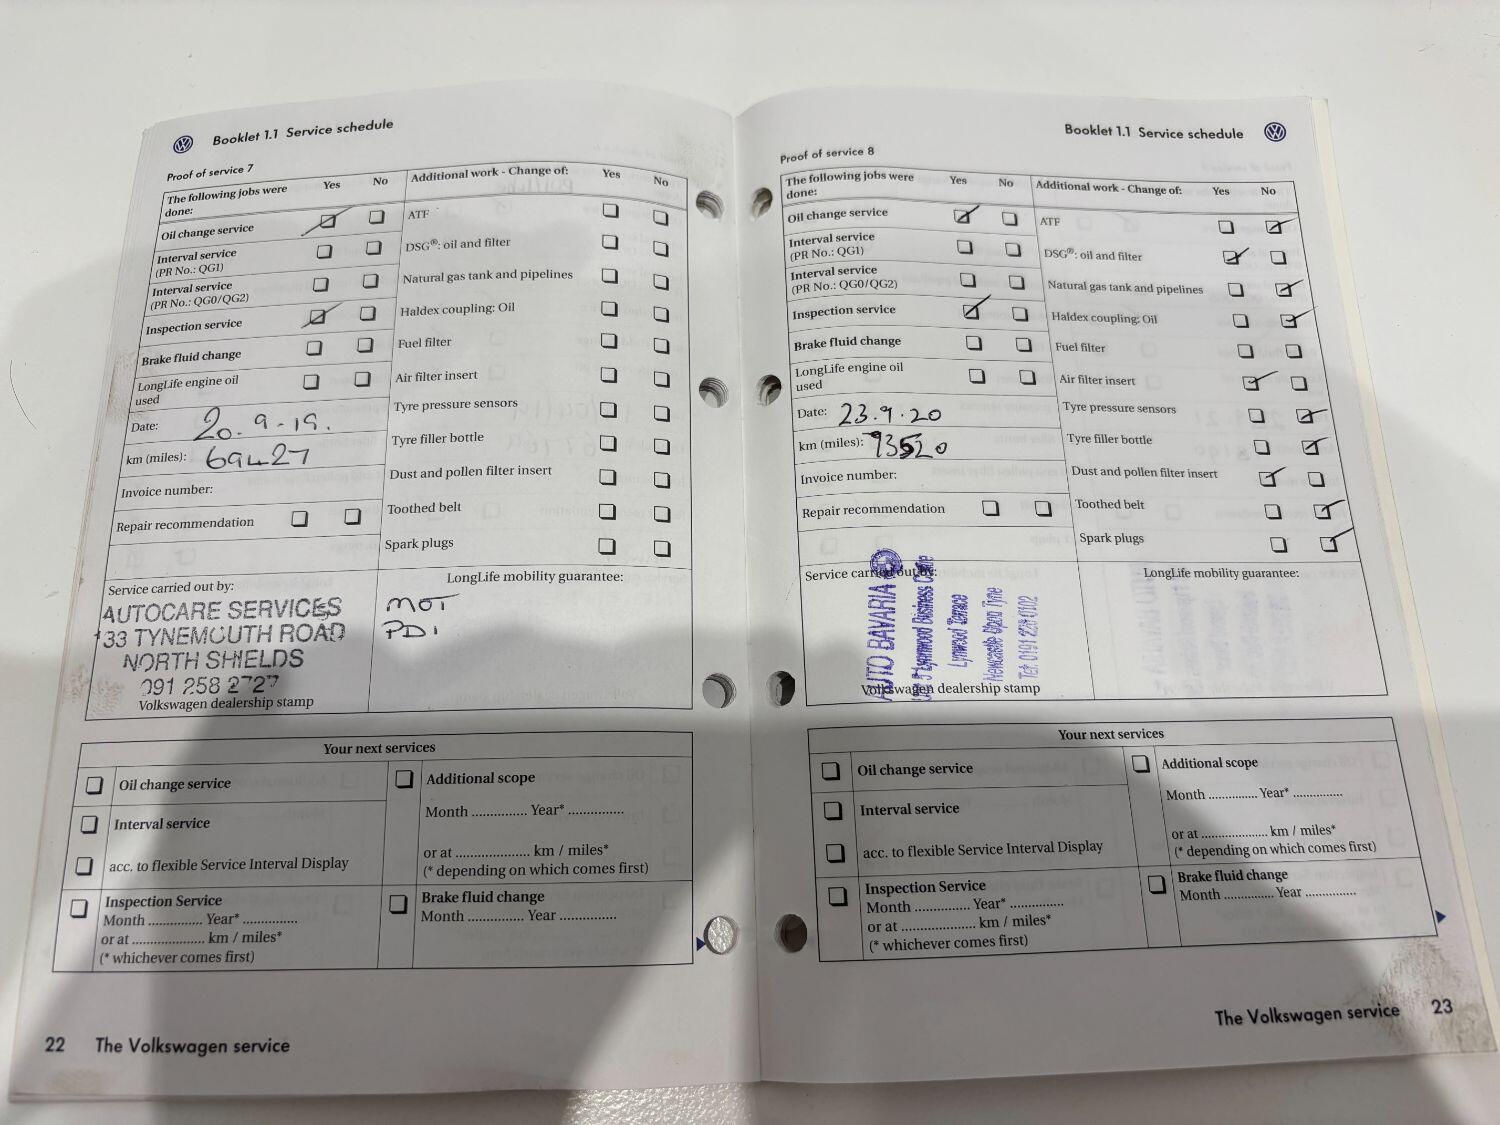 Booklet 1.1 Service schedule
Proof of service 7
The following jobs were done: Yes No
Oil change service
Interval service
(PR No.: QG1)
Interval service
(PR No.: QG0/QG2)
Inspection service
Brake fluid change
LongLife engine oil
used
Date: 20.9-19.
km (miles): 69427
Invoice number:
Repair recommendation
Additional work - Change of: Yes No
ATF
DSG®: oil and filter
Natural gas tank and pipelines
Haldex coupling: Oil
Fuel filter
Air filter insert
Tyre pressure sensors
Tyre filler bottle
Dust and pollen filter insert
Toothed belt
Spark plugs
Service carried out by:
AUTOCARE SERVICES
133 TYNEMOUTH ROAD
NORTH SHIELDS
091 258 2727
Volkswagen dealership stamp
LongLife mobility guarantee:
MOT
PDI
Your next services
Oil change service
Interval service
acc. to flexible Service Interval Display
Inspection Service
Month .............. Year* ..............
or at .................... km / miles*
(* whichever comes first)
Additional scope
Month .............. Year* ..............
or at .................... km / miles*
(* depending on which comes first)
Brake fluid change
Month .............. Year ..............
22 The Volkswagen service
Booklet 1.1 Service schedule
Proof of service 8
The following jobs were
done: Yes No
Oil change service
Interval service
(PR No.: QG1)
Interval service
(PR No.: QG0/QG2)
Inspection service
Brake fluid change
LongLife engine oil
used
Date: 23.9.20
km (miles): 93520
Invoice number:
Repair recommendation
Additional work - Change of: Yes No
ATF
DSG®: oil and filter
Natural gas tank and pipelines
Haldex coupling: Oil
Fuel filter
Air filter insert
Tyre pressure sensors
Tyre filler bottle
Dust and pollen filter insert
Toothed belt
Spark plugs
Service carried out by:
AUTO BAVARIA
Lynnwood Business Centre
Lynwood Terrace
Newcastle Upon Tyne
Tel: 0191
Volkswagen dealership stamp
LongLife mobility guarantee:
Your next services
Oil change service
Interval service
acc. to flexible Service Interval Display
Inspection Service
Month .............. Year* ..............
or at .................... km / miles*
(* whichever comes first)
Additional scope
Month .............. Year* ..............
or at .................... km / miles*
(* depending on which comes first)
Brake fluid change
Month .............. Year ..............
The Volkswagen service 23